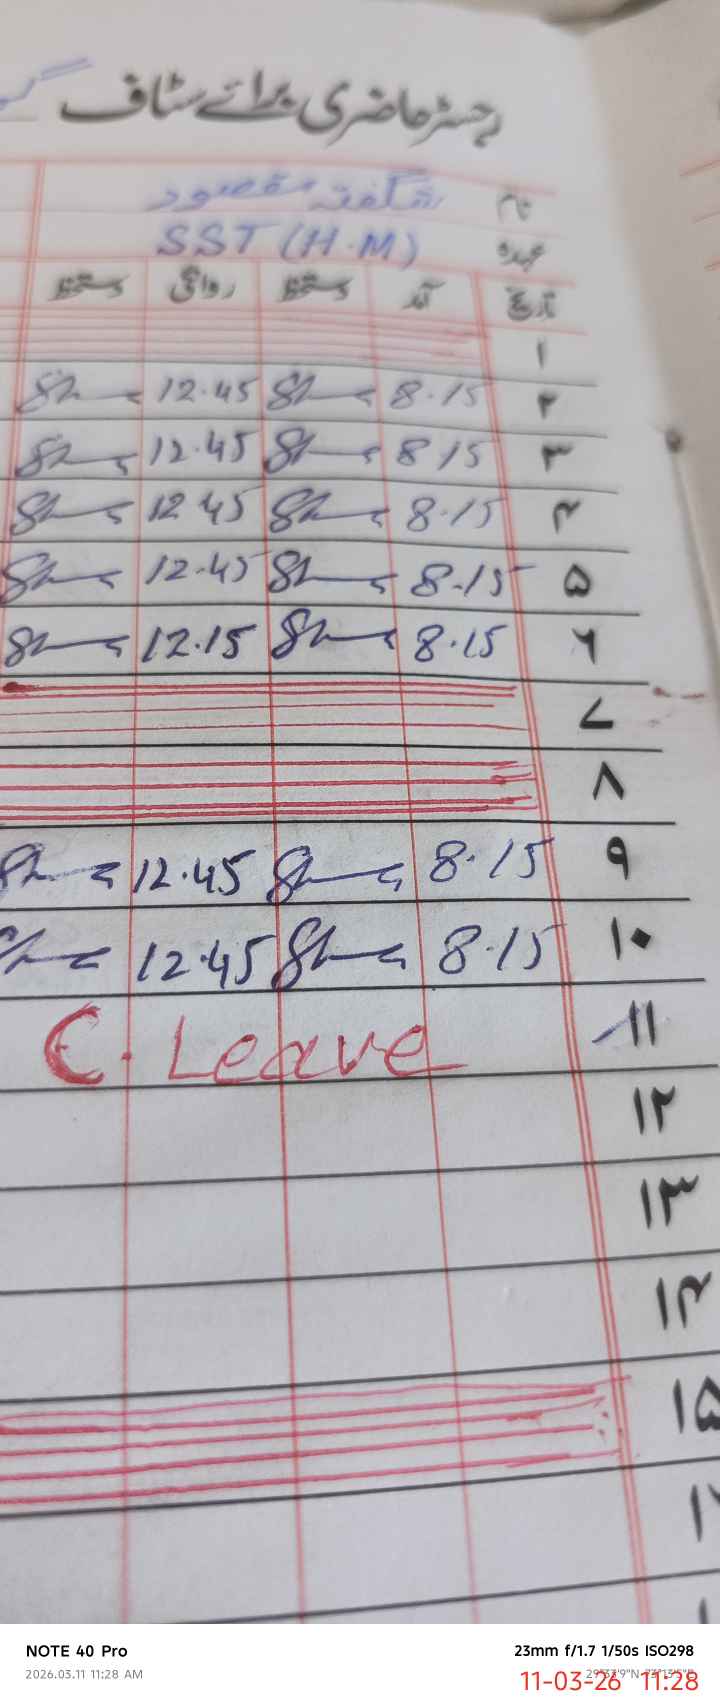 رجسٹر حاضری برائے سٹاف
نام شگفتہ مقصود
عہدہ SST (H.M)
تاریخ آمد دستخط روانگی دستخط
۱
۲ 8.15 12.45
۳ 8 15 12.45
۴ 8.15 12 45
۵ 8.15 12.45
۶ 8.15 12.15
۷
۸
۹ 8.15 12.45
۱۰ 8.15 12.45
۱۱ C. Leave
۱۲
۱۳
۱۴
۱۵
NOTE 40 Pro
23mm f/1.7 1/50s ISO298
2026.03.11 11:28 AM
11-03-26 11:28